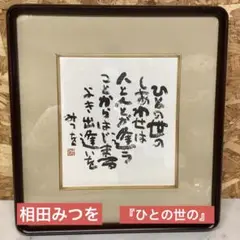 ひとの世の
しあわせは
人と人とが逢う
ことからはじまる
よき出逢いを
みつを
相田みつを
『ひとの世の』